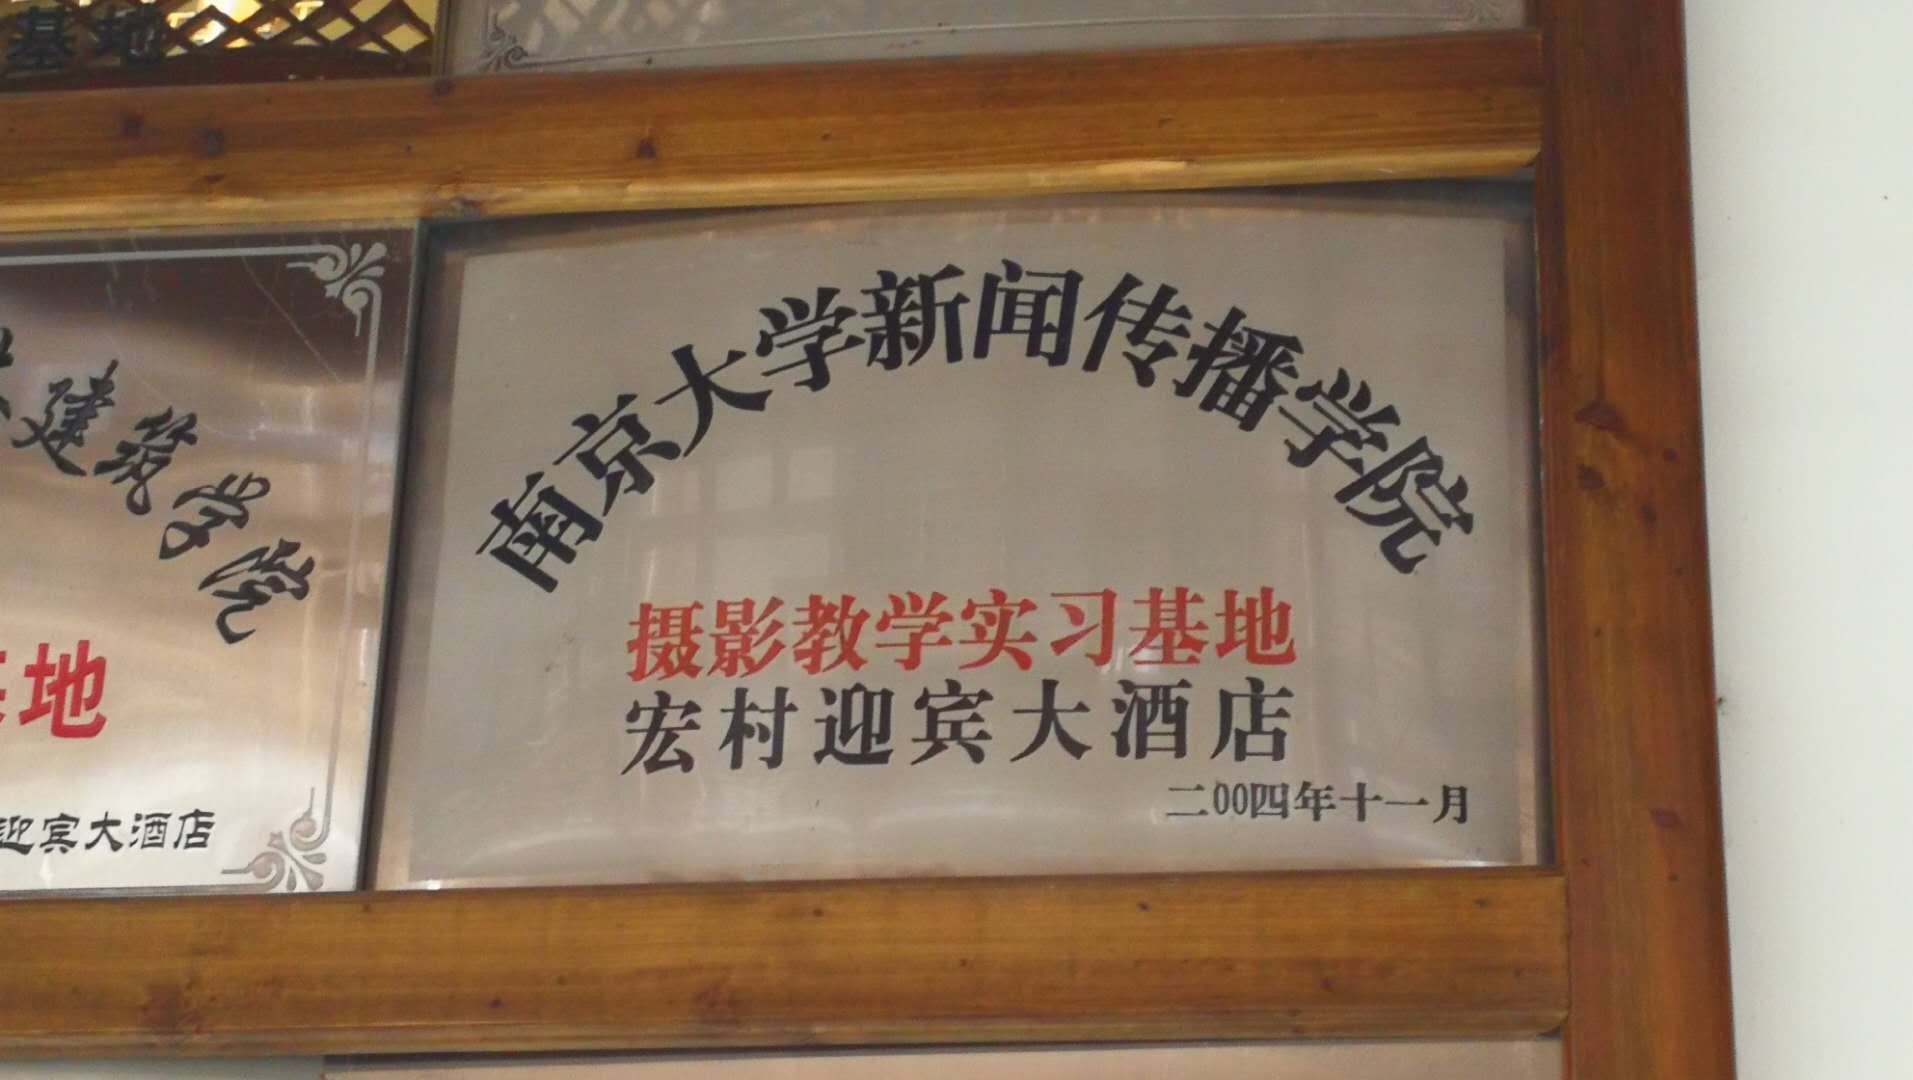 基地
建筑学院
地
迎宾大酒店
南京大学新闻传播学院
摄影教学实习基地
宏村迎宾大酒店
二00四年十一月